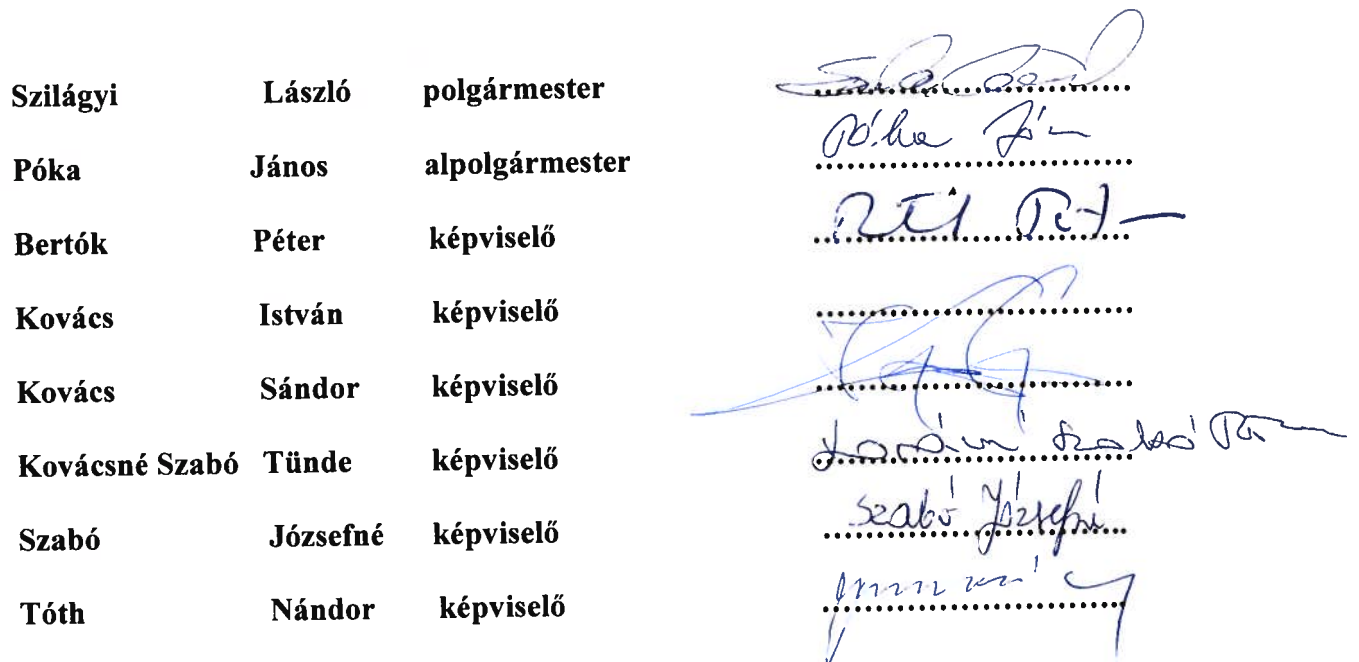 Szilágyi László polgármester ....................
Póka János alpolgármester .................... Póka
Bertók Péter képviselő ....................
Kovács István képviselő ....................
Kovács Sándor képviselő ....................
Kovácsné Szabó Tünde képviselő .................... Szabó
Szabó Józsefné képviselő .................... Szabó Józsefné
Tóth Nándor képviselő ....................